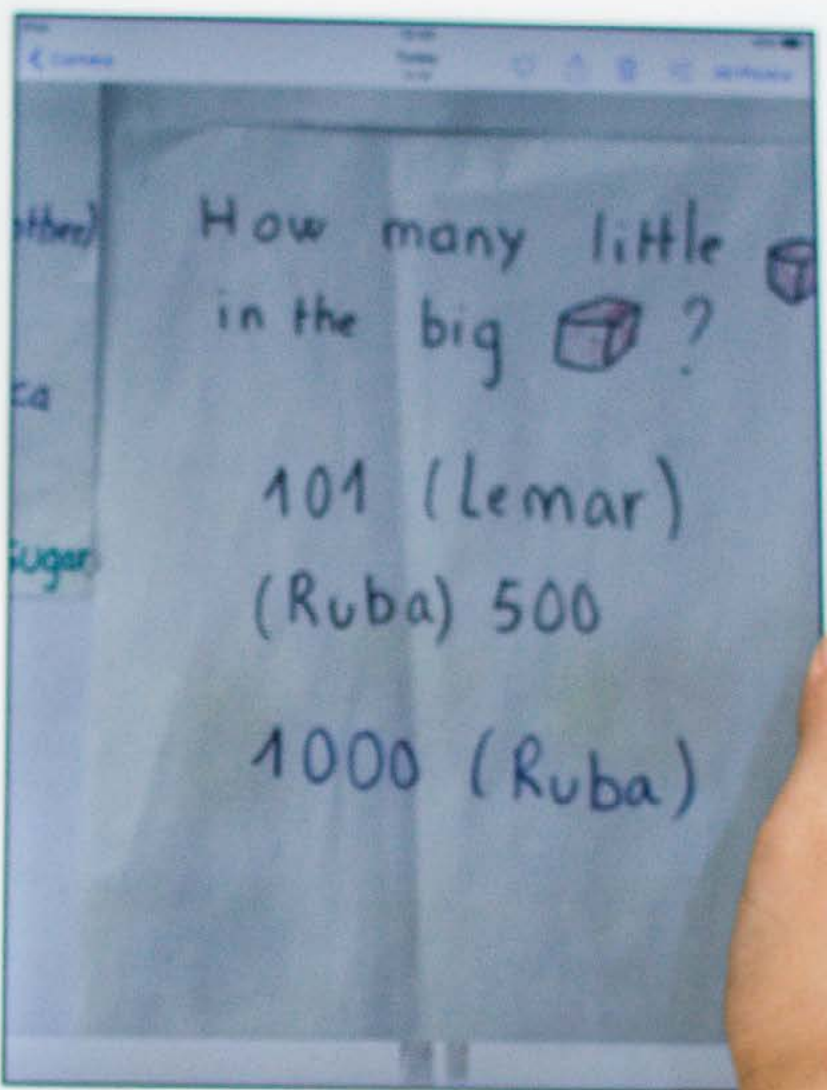 How many little
in the big ?
101 (Lemar)
(Ruba) 500
1000 (Ruba)
Sugar